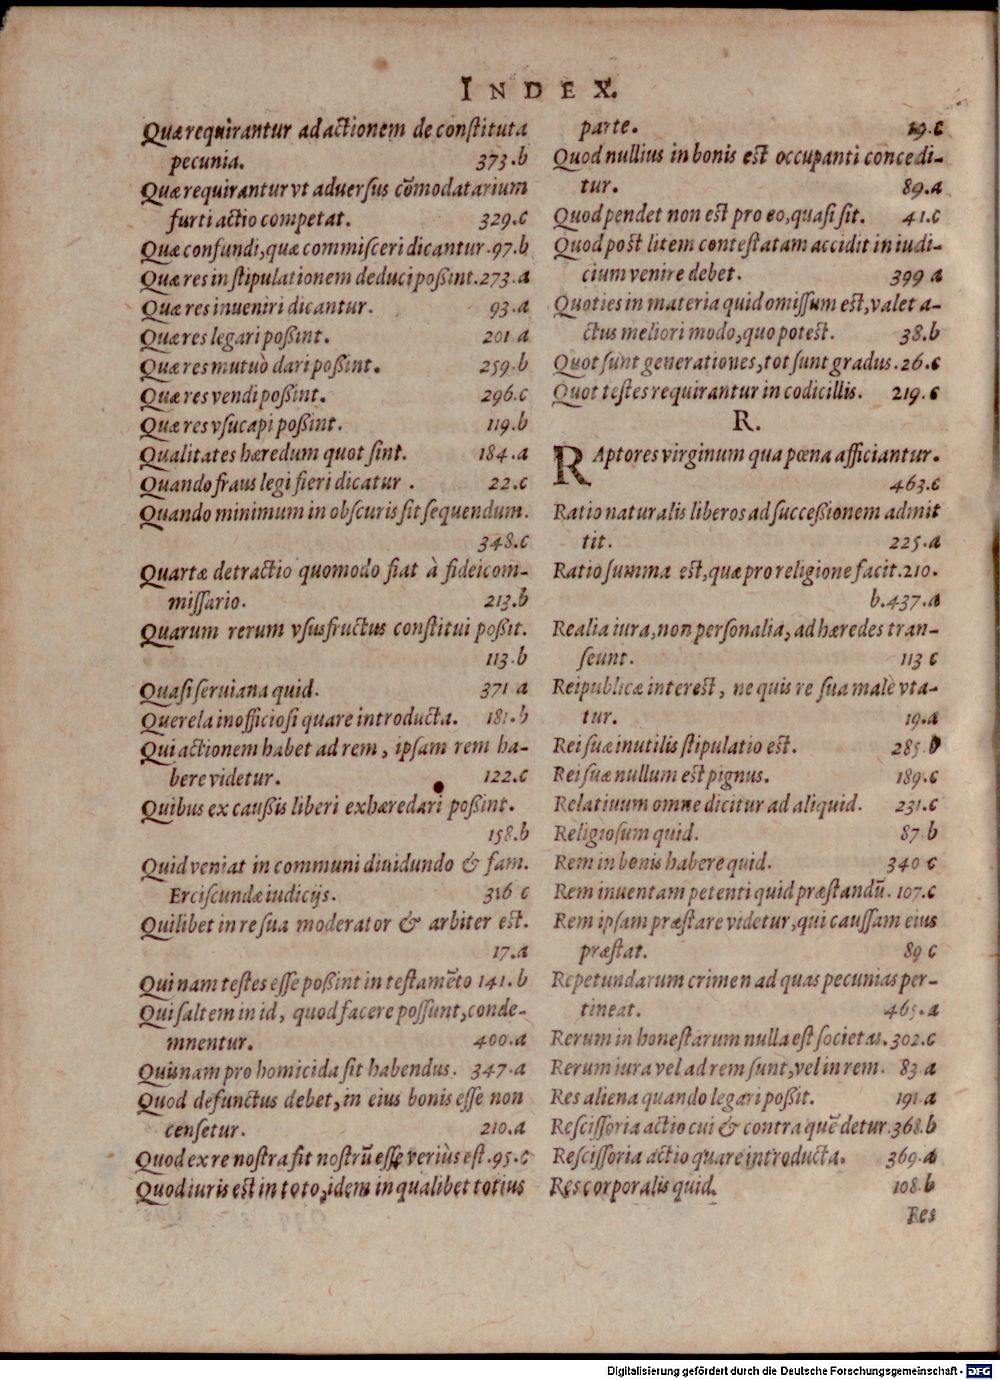 INDEX.
Quæ requirantur ad actionem de constituta
pecunia. 373.b
Quæ requirantur vt aduersus cōmodatarium
furti actio competat. 329.c
Quæ confundi, quæ commisceri dicantur. 97.b
Quæ res in stipulationem deduci poßint. 273.a
Quæ res inueniri dicantur. 93.a
Quæ res legari poßint. 201 a
Quæ res mutuò dari poßint. 259.b
Quæ res vendi poßint. 296.c
Quæ res vsucapi poßint. 119.b
Qualitates hæredum quot sint. 184.a
Quando fraus legi fieri dicatur. 22.c
Quando minimum in obscuris sit sequendum.
348.c
Quartæ detractio quomodo fiat à fideicom-
missario. 213.b
Quarum rerum vsusfructus constitui poßit.
113.b
Quasi seruiana quid. 371 a
Querela inofficiosi quare introducta. 181.b
Qui actionem habet ad rem, ipsam rem ha-
bere videtur. 122.c
Quibus ex caußis liberi exhæredari poßint.
158.b
Quid veniat in communi diuidundo & fam.
Erciscundæ iudicijs. 316 c
Quilibet in re sua moderator & arbiter est.
17.a
Qui nam testes esse poßint in testamēto 141.b
Qui saltem in id, quod facere possunt, conde-
mnentur. 400.a
Quisnam pro homicida sit habendus. 347.a
Quod defunctus debet, in eius bonis esse non
censetur. 210.a
Quod ex re nostra fit nostrū esse verius est. 95.c
Quod iuris est in toto, idem in qualibet totius
parte. 19.c
Quod nullius in bonis est occupanti concedi-
tur. 89.a
Quod pendet non est pro eo, quasi sit. 41.c
Quod post litem contestatam accidit in iudi-
cium venire debet. 399 a
Quoties in materia quid omissum est, valet a-
ctus meliori modo, quo potest. 38.b
Quot sunt generationes, tot sunt gradus. 26.c
Quot testes requirantur in codicillis. 219.c
R.
RAptores virginum qua pœna afficiantur.
463.c
Ratio naturalis liberos ad succeßionem admit
tit. 225.a
Ratio summa est, quæ pro religione facit. 210.
b. 437.a
Realia iura, non personalia, ad hæredes tran-
seunt. 113 c
Reipublicæ interest, ne quis re sua malè vta-
tur. 19.a
Rei suæ inutilis stipulatio est. 285.b
Rei suæ nullum est pignus. 189.c
Relatiuum omne dicitur ad aliquid. 231.c
Religiosum quid. 87 b
Rem in bonis habere quid. 340 c
Rem inuentam petenti quid præstandū. 107.c
Rem ipsam præstare videtur, qui caussam eius
præstat. 89 c
Repetundarum crimen ad quas pecunias per-
tineat. 465.a
Rerum in honestarum nulla est societas. 302.c
Rerum iura vel ad rem sunt, vel in rem. 83 a
Res aliena quando legari poßit. 191.a
Rescissoria actio cui & contra quē detur. 368.b
Rescissoria actio quare introducta. 369.a
Res corporalis quid. 108.b
Res
Digitalisierung gefördert durch die Deutsche Forschungsgemeinschaft - DFG